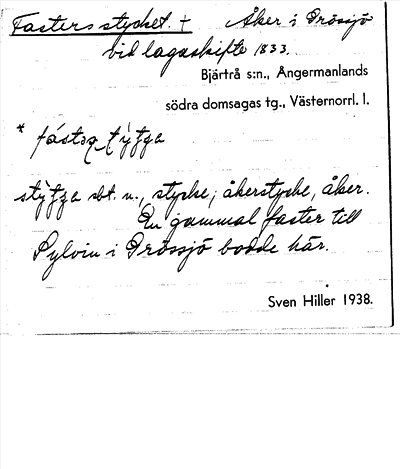 Fastersstycket. + Åker i Grössjö
vid lagaskifte 1833.
Bjärtrå s:n., Ångermanlands
södra domsagas tg., Västernorrl. l.
stycke, åkerstycke, åker.
En gammal faster till
Sylvin i Grössjö bodde här.
Sven Hiller 1938.